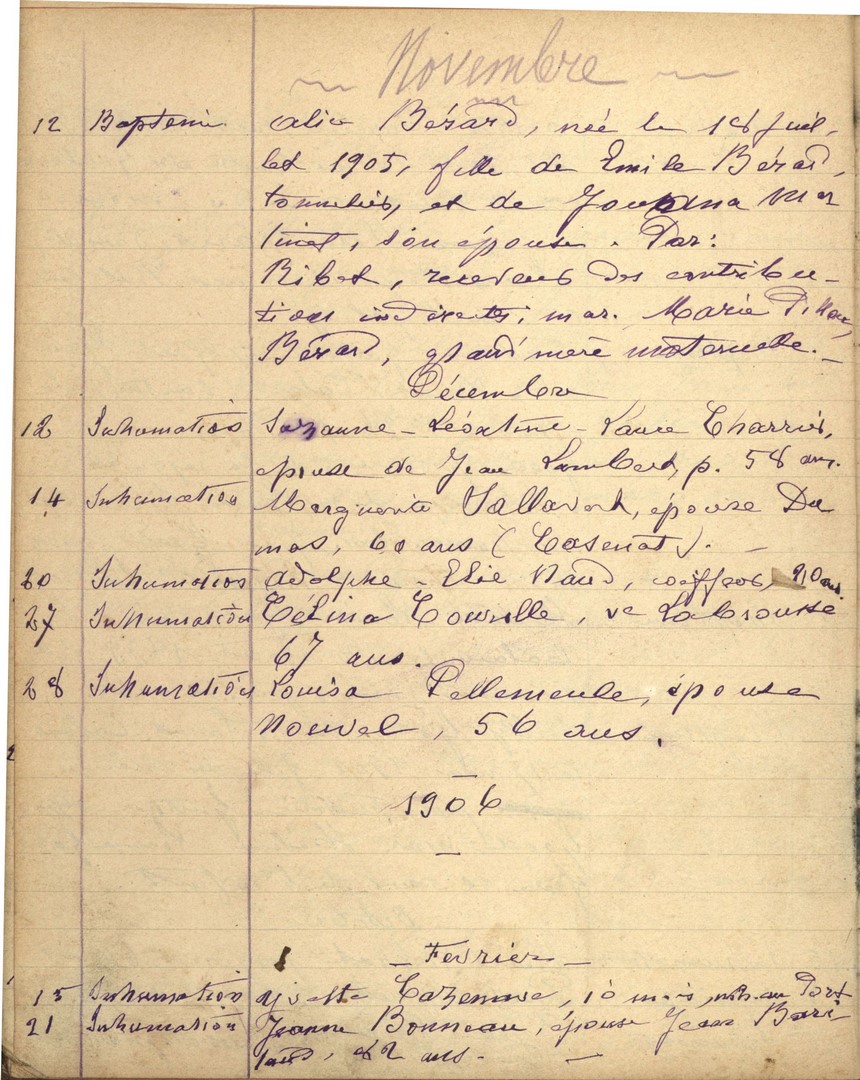 ~ Novembre ~
12 Baptême Alice Bérard, née le 18 juil-
let 1905, fille de Emile Bérard,
tonnelier, et de Mar
tinet, son épouse. Par:
Ribet, receveur des contribu-
tions indirectes; mar. Marie
Bérard, grand'mère maternelle. -
Décembre
12 Inhumation Suzanne - Léontine - Laure Charrier,
épouse de Jean Lambert, p. 58 ans.
14 Inhumation Marguerite Sallavert, épouse Du
mas, 60 ans ( ). -
20 Inhumation Adolphe - Elie Naud, coiffeur, ans.
27 Inhumation Célina Tourelle, ve Labrousse
67 ans.
28 Inhumation Louisa Pellemeule, épouse
Nouvel, 56 ans.
1906
- Fevrier -
15 Inhumation Yvette Cazenave, 10 mois, Port
21 Inhumation Jeanne Bonneau, épouse Jean Bari-
taud, 82 ans. -